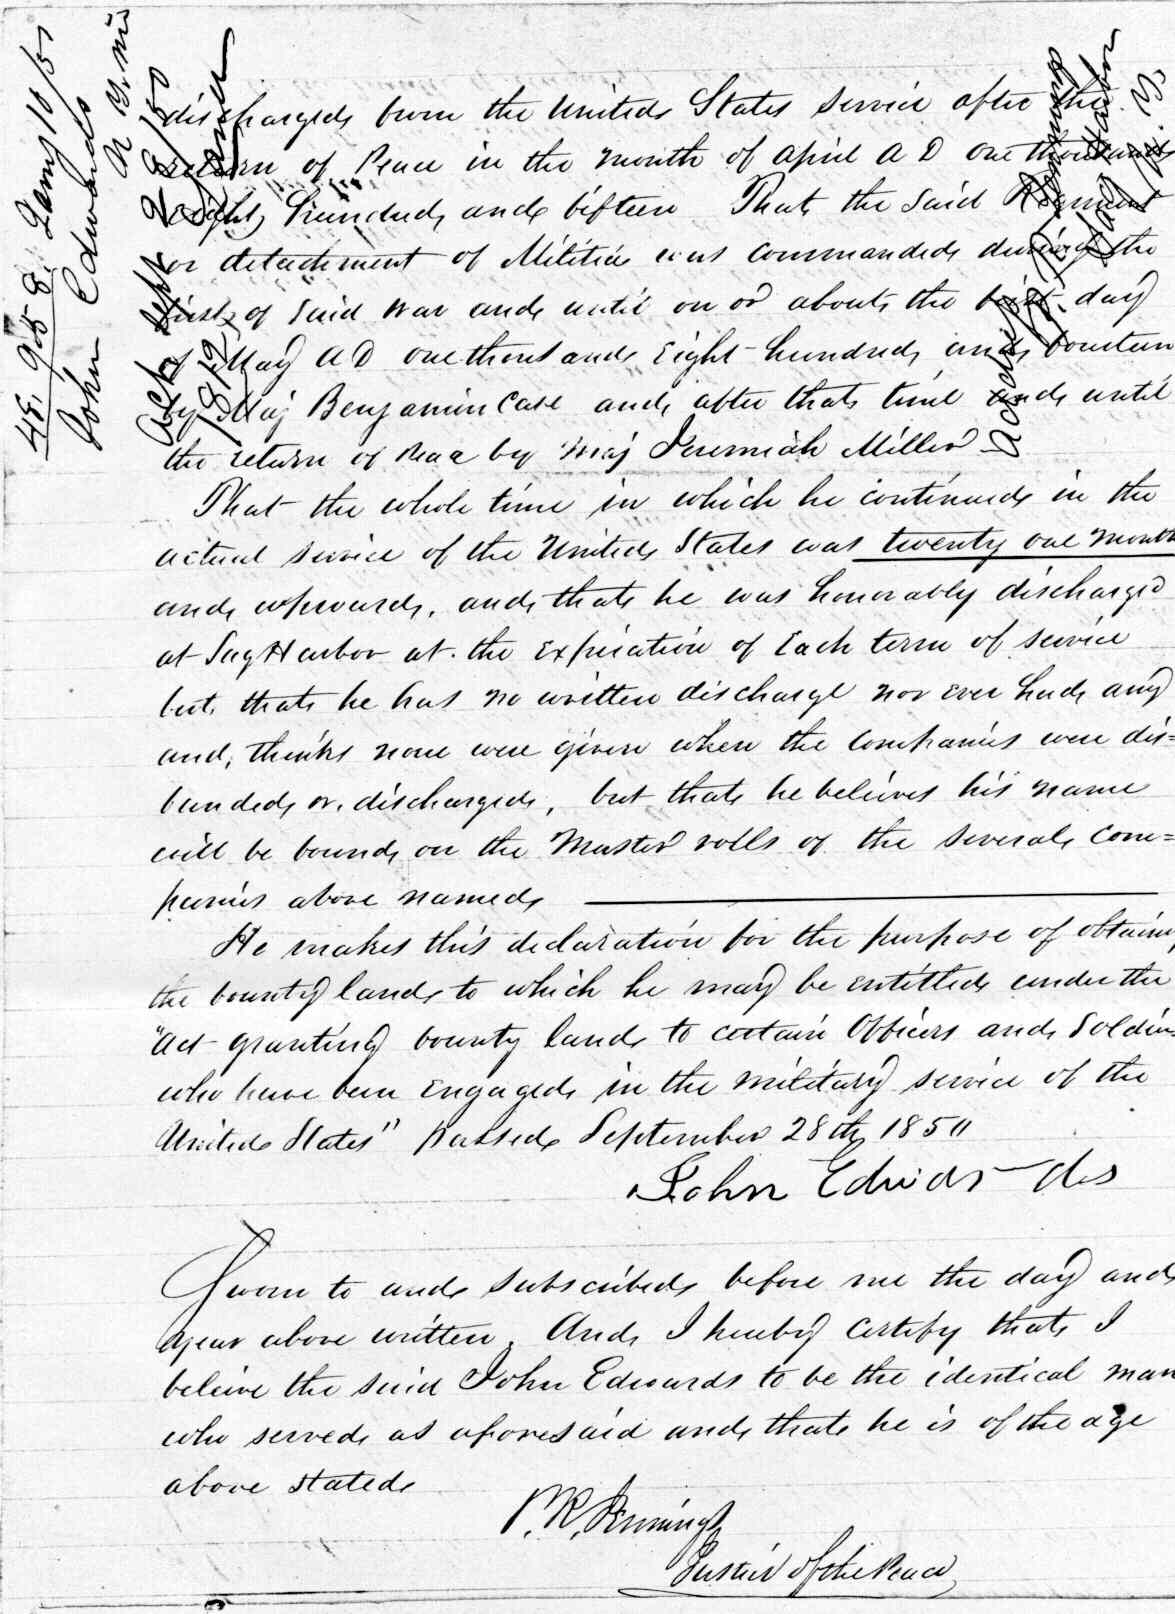 48,958. Jany 10/51
John Edwards
N.Y. Mis
Act Sept 28/50
1812
discharged from the United States service after the
return of Peace in the month of april A D one thousand
eight hundred and fifteen That the said Regiment
or detachment of Militia was commanded during the
first of said war and until on or about the first day
of May A D one thousand Eight hundred and fourteen
by Maj Benjamin Case and after that time and until
the return of Peace by Maj Jeremiah Miller
That the whole time in which he continued in the
actual service of the United States was twenty one month
and upwards, and that he was honorably discharged
at Sag Harbor at the Expiration of Each term of service
but that he has no written discharge nor ever had any
and thinks none were given when the companies were dis=
banded or discharged, but that he believes his name
will be found on the Muster rolls of the several com=
panies above named
He makes this declaration for the purpose of obtaining
the bounty land to which he may be entitled under the
"Act granting bounty land to certain Officers and Soldiers
who have been Engaged in the military service of the
United States" passed September 28th 1850
John Edwards
Sworn to and subscribed before me the day and
year above written. And I hereby certify that I
beleive the said John Edwards to be the identical man
who served as aforesaid and that he is of the age
above stated
P. R. Jennings
Justice of the Peace
Sag Harbor
N. Y.